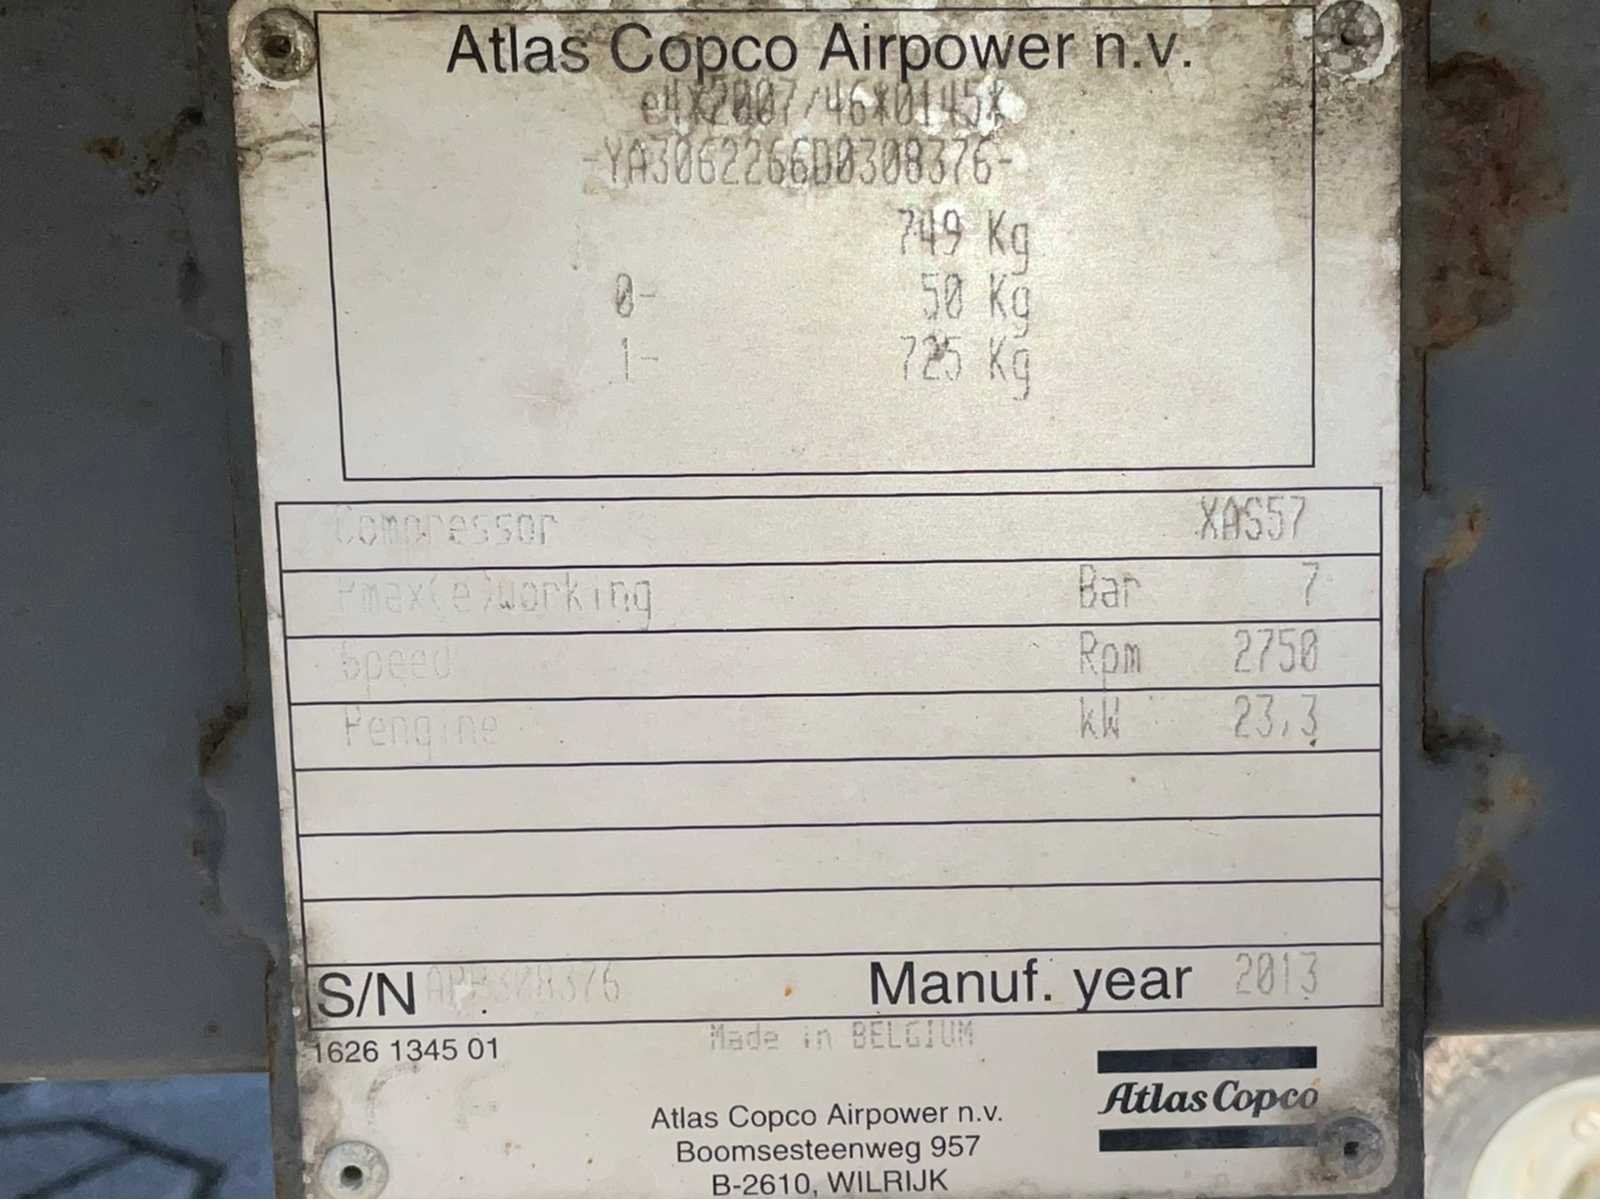 Atlas Copco Airpower n.v.
e4*2007/46*0145*
-YA3062266D0308376-
749 Kg
0- 50 Kg
1- 725 Kg
Compressor XAS57
Pmax(e)working Bar 7
Speed Rpm 2750
Pengine kW 23,3
S/N APB308376 Manuf. year 2013
1626 1345 01
Made in BELGIUM
Atlas Copco
Atlas Copco Airpower n.v.
Boomsesteenweg 957
B-2610, WILRIJK